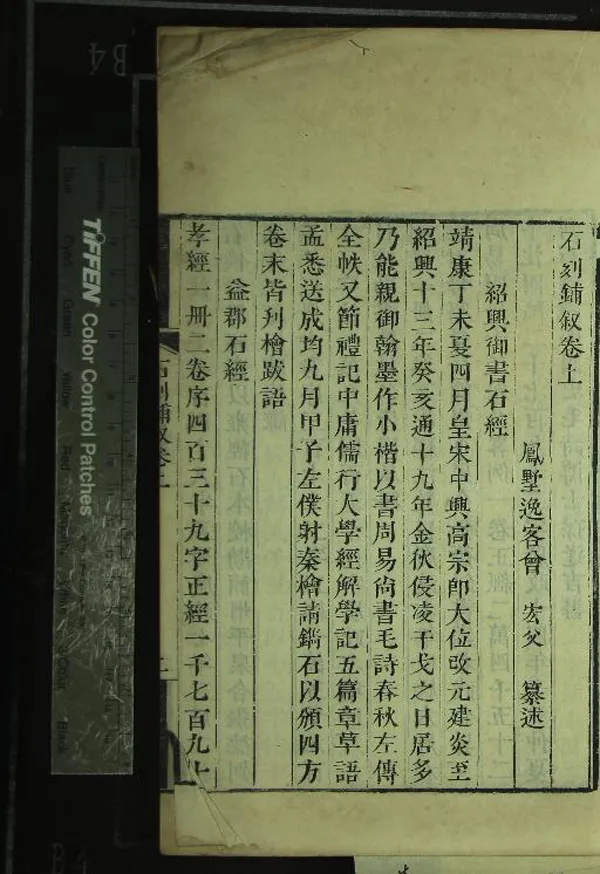 石刻鋪叙卷上
鳳墅逸客曾 宏父 纂述
紹興御書石經
靖康丁未夏四月皇宋中興高宗卽大位改元建炎至
紹興十三年癸亥通十九年金伙侵凌干戈之日居多
乃能親御翰墨作小楷以書周易尙書毛詩春秋左傳
全帙又節禮記中庸儒行大學經解學記五篇章草語
孟悉送成均九月甲子左僕射秦檜請鐫石以頒四方
卷末皆刋檜跋語
益郡石經
孝經一冊二卷序四百三十九字正經一千七百九十
石刻鋪叙卷上
一
TIFFEN Color Control Patches
Blue
Cyan
Green
Yellow
Red
Black
B4
B4